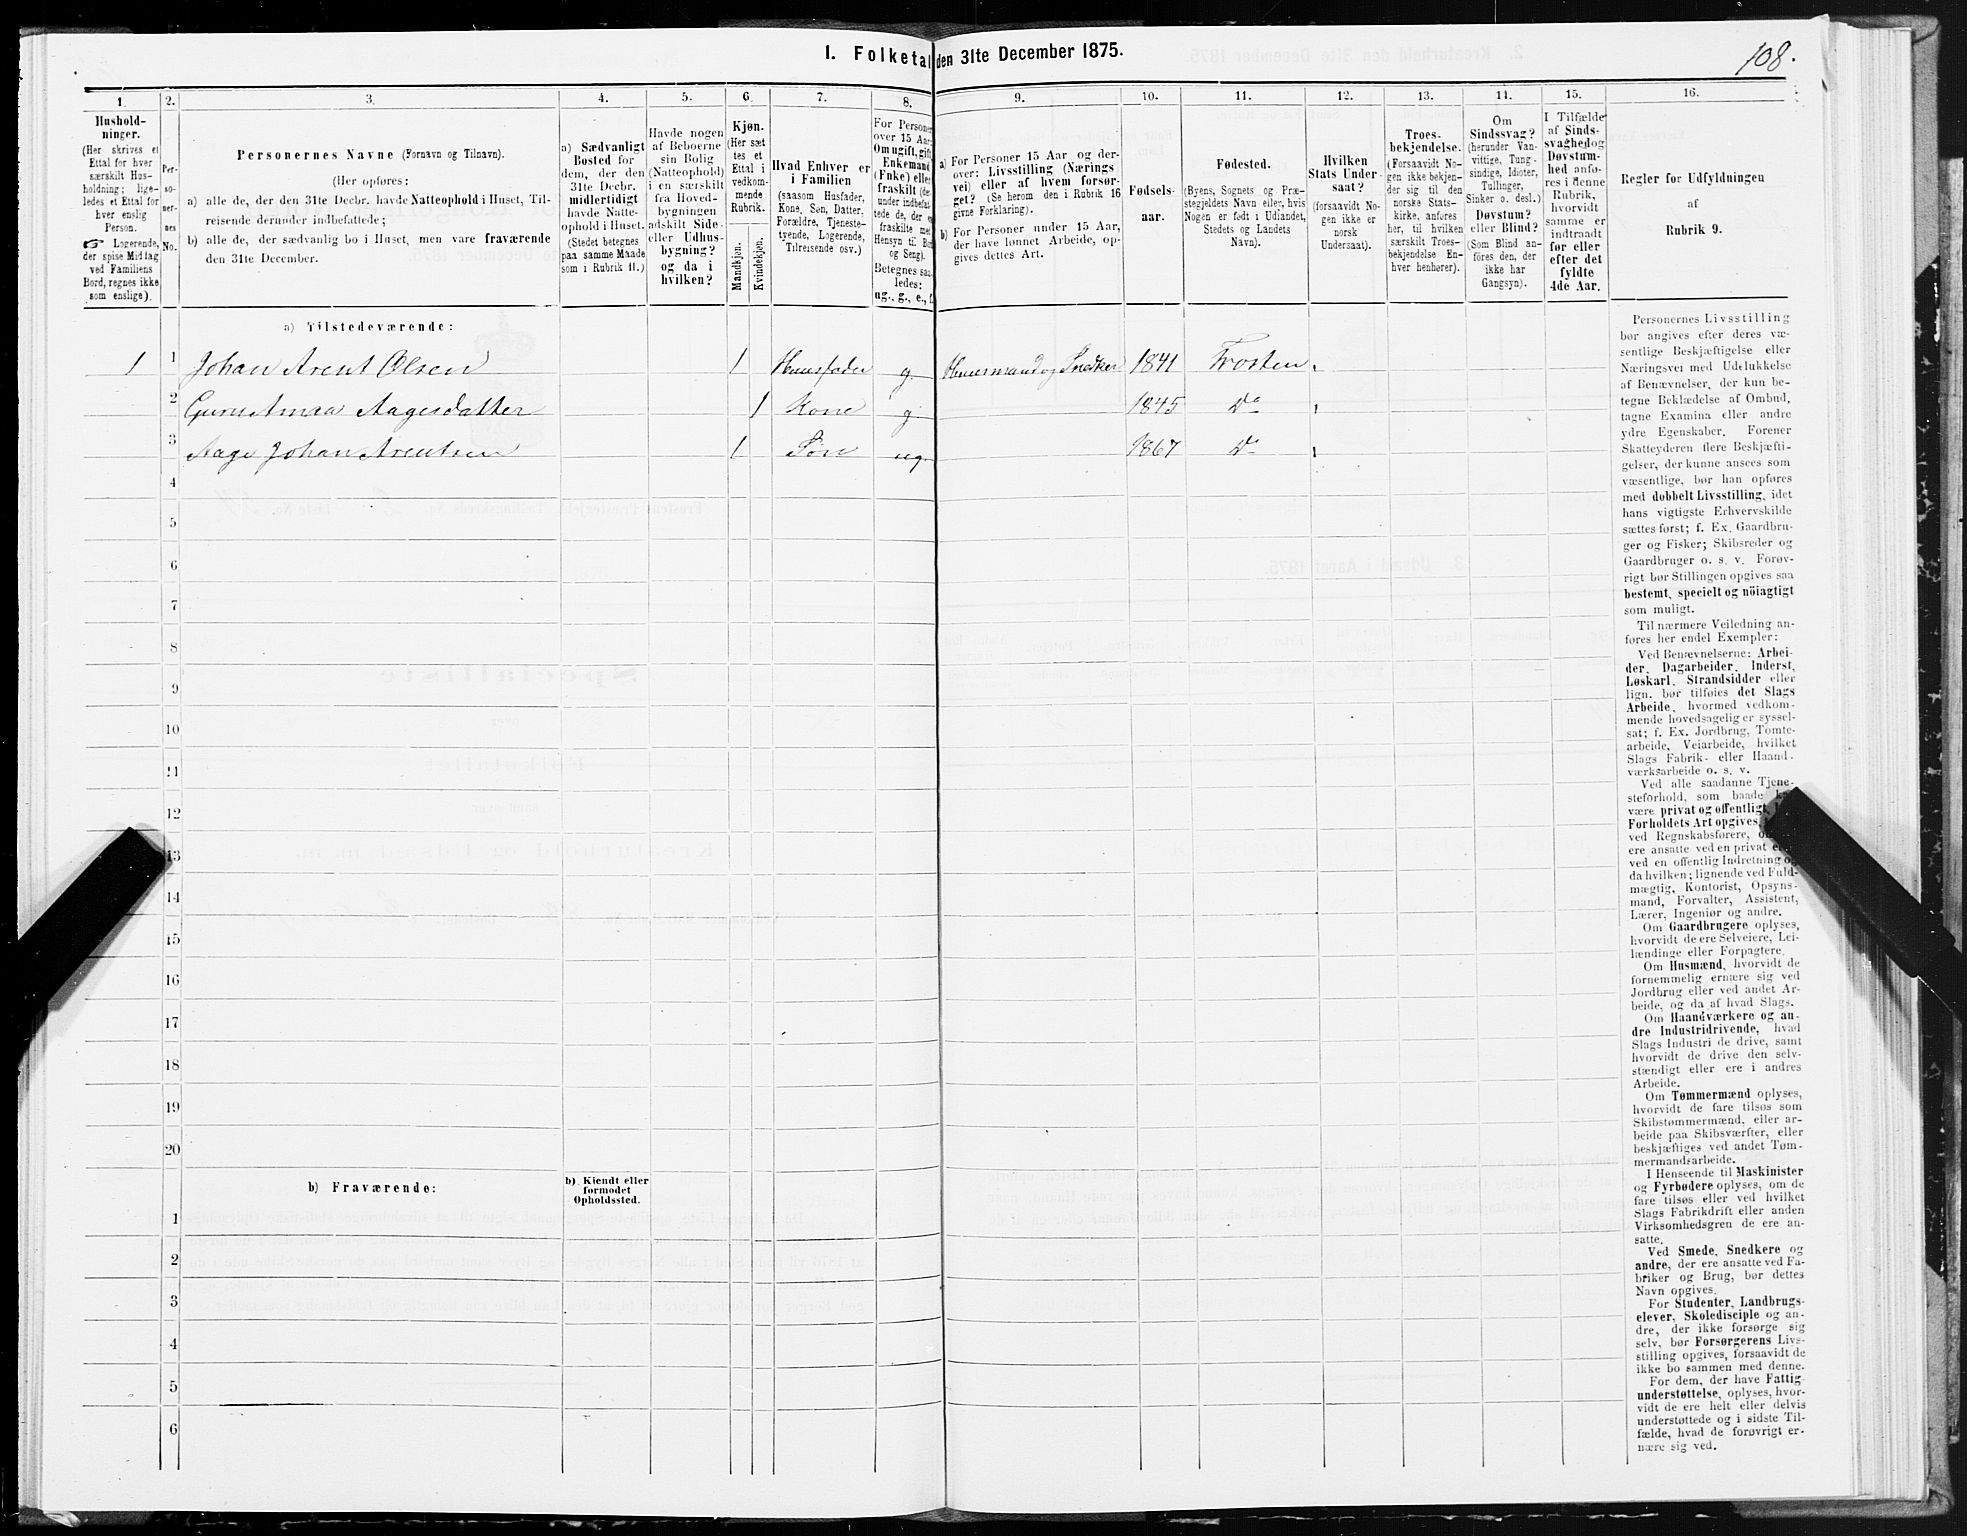 108.
1. Folketal den 31te December 1875.
1. 2. 3. 4. 5. 6. 7. 8. 9. 10. 11. 12. 13. 14. 15. 16.
Hushold-
ninger.
(Her skrives et
Ettal for hver
særskilt Hus-
holdning; lige-
ledes et Ettal for
hver enslig
Person.
☞ Logerende,
der spise Middag
ved Familiens
Bord, regnes ikke
som enslige).
Per-
so-
ner-
nes
No.
Personernes Navne (Fornavn og Tilnavn).
(Her opføres:
a) alle de, der den 31te Decbr. havde Natteophold i Huset, Til-
reisende derunder indbefattede;
b) alle de, der sædvanlig bo i Huset, men vare fraværende
den 31te December.
a) Sædvanligt
Bosted for
dem, der den
31te Decbr.
midlertidigt
havde Natte-
ophold i Huset.
(Stedet betegnes
paa samme Maade
som i Rubrik 11.)
Havde nogen
af Beboerne
sin Bolig
(Natteophold)
i en særskilt
fra Hoved-
bygningen
adskilt Side-
eller Udhus-
bygning?
og da i
hvilken?
Kjøn.
(Her sæt
tes et
Ettal i
vedkom-
mende
Rubrik.
Mandkjøn.
Kvindekjøn.
Hvad Enhver er
i Familien
(saasom Husfader,
Kone, Søn, Datter,
Forældre, Tjeneste-
tyende, Logerende,
Tilreisende osv.)
For Personer
over 15 Aar:
Om ugift, gift,
Enkemand
(Enke) eller
fraskilt (de
under indbefat-
tede de, der er
fraskilte med
Hensyn til Bo
og Seng).
Betegnes saa-
ledes:
ug., g., e., f.
a) For Personer 15 Aar og der-
over: Livsstilling (Nærings
vei) eller af hvem forsør-
get? (Se herom den i Rubrik 16
givne Forklaring).
b) For Personer under 15 Aar,
der have lønnet Arbeide, op-
gives dettes Art.
Fødsels-
aar.
Fødested.
(Byens, Sognets og Præ-
stegjeldets Navn eller, hvis
Nogen er født i Udlandet,
Stedets og Landets
Navn).
Hvilken
Stats Under-
saat?
(forsaavidt No-
gen ikke er
norsk
Undersaat).
Troes-
bekjendelse.
(Forsaavidt No-
gen ikke bekjen-
der sig til den
norske Stats-
kirke, anføres
her, til hvilken
særskilt Troes-
bekjendelse En-
hver henhører).
Om
Sindssvag?
(herunder Van-
vittige, Tung-
sindige, Idioter,
Tullinger,
Sinker o. desl.)
Døvstum?
eller Blind?
(Som Blind an-
føres den, der
ikke har
Gangsyn).
I Tilfælde
af Sinds-
svaghed og
Døvstum-
hed anfø-
res i denne
Rubrik,
hvorvidt
samme er
indtraadt
før eller
efter det
fyldte
4de Aar.
Regler for Udfyldningen
af
Rubrik 9.
a) Tilstedeværende:
1 1 Johan Arent Olsen 1 Huusfader g. Huusmand og Snedker 1841 Frosten
2 Guru Anna Aagesdatter 1 Kone g. 1845 Do
3 Aage Johan Arentsen 1 Søn ug. 1867 Do
4
5
6
7
8
9
10
11
12
13
14
15
16
17
18
19
20
b) Fraværende:
b) Kiendt eller
formodet
Opholdssted.
1
2
3
4
5
6
Personernes Livsstilling
bør angives efter deres væ-
sentlige Beskjæftigelse eller
Næringsvei med Udelukkelse
af Benævnelser, der kun be-
tegne Beklædelse af Ombud,
tagne Examina eller andre
ydre Egenskaber. Forener
Skatteyderen flere Beskjæfti-
gelser, der kunne ansees som
væsentlige, bør han opføres
med dobbelt Livsstilling, idet
hans vigtigste Erhvervskilde
sættes først; f. Ex. Gaardbru-
ger og Fisker; Skibsreder og
Gaardbruger o. s. v. Forøv-
rigt bør Stillingen opgives saa
bestemt, specielt og nöiagtigt
som muligt.
Til nærmere Veiledning an-
føres her endel Exempler:
Ved Benævnelserne: Arbei-
der, Dagarbeider, Inderst,
Løskarl, Strandsidder eller
lign. bør tilføies det Slags
Arbeide, hvormed vedkom-
mende hovedsagelig er syssel-
sat; f. Ex. Jordbrug, Tomte-
arbeide, Veiarbeide, hvilket
Slags Fabrik- eller Haand-
værksarbeide o. s. v.
Ved alle saadanne Tjene-
steforhold, som baade
være privat og offentligt,
Forholdets Art opgives,
ved Regnskabsførere,
ere ansatte ved en privat
ved en offentlig Indretning og
da hvilken; lignende ved Fuld-
mægtig, Kontorist, Opsyns-
mand, Forvalter, Assistent,
Lærer, Ingeniør og andre.
Om Gaardbrugere oplyses,
hvorvidt de ere Selveiere, Lei-
lændinge eller Forpagtere.
Om Husmænd, hvorvidt de
fornemmelig ernære sig ved
Jordbrug eller ved andet Ar-
beide, og da af hvad Slags.
Om Haandværkere og an-
dre Industridrivende, hvad
Slags Industri de drive, samt
hvorvidt de drive den selv-
stændigt eller ere i andres
Arbeide.
Om Tømmermænd oplyses,
hvorvidt de fare tilsøs som
Skibstømmermænd, eller ar-
beide paa Skibsværfter, eller
beskjæftiges ved andet Tøm-
mermandsarbeide.
I Henseende til Maskinister
og Fyrbødere oplyses, om de
fare tilsøs eller ved hvilket
Slags Fabrikdrift eller anden
Virksomhedsgren de ere an-
satte.
Ved Smede, Snedkere og
andre, der ere ansatte ved Fa-
briker og Brug, bør dettes
Navn opgives.
For Studenter, Landbrugs-
elever, Skoledisciple og an-
dre, der ikke forsørge sig
selv, bør Forsørgerens Livs-
stilling opgives, forsaavidt de
ikke bo sammen med denne.
For dem, der have Fattig-
understøttelse, oplyses, hvor-
vidt de ere helt eller delvis
understøttede og i sidste Til-
fælde, hvad de forøvrigt er-
nære sig ved.